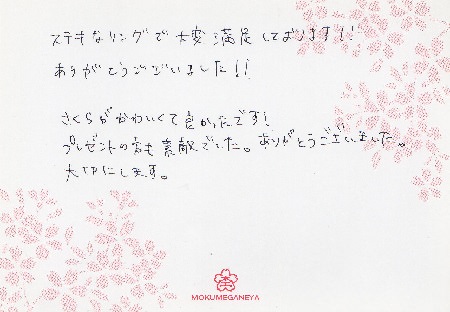 ステキなリングで大変満足しております!!
ありがとうございました!!
さくらがかわいくて良かったです!
プレゼントの方も素敵でした。ありがとうございました。
大切にします。
MOKUMEGANEYA